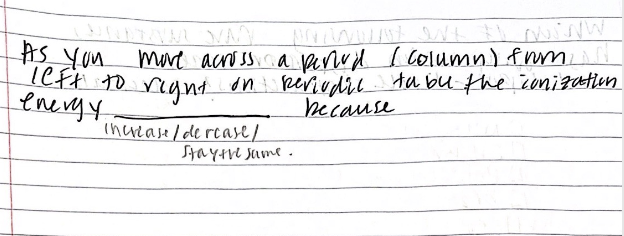 As you move across a period (column) from
left to right on periodic table the ionization
energy __________ because
increase/decrease/
stay the same.